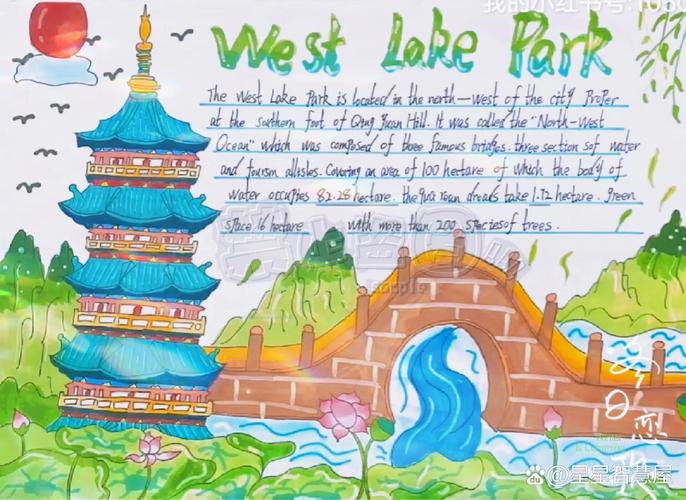 我的小红书号:1060
West Lake Park
The West Lake Park is located in the north-west of the city Proper
at the southern foot of Qing Yuan Hill. It was called the "North-West
Ocean" which was composed of three famous bridges. three section sof water
and fourism allisles. Covering an area of 100 hectare of which the body of
water occupies 82.28 hectare. the qua roan droads take 1.72 hectare. green
space 16 hectare with more than 200 speciesof trees.
冬日恋
sample
@星星智慧屋